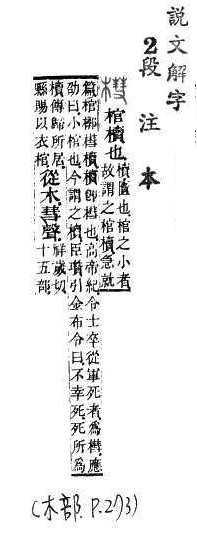 說文解字
2段注本
槥 棺櫝也.櫝匵也.棺之小者.
故謂之棺櫝急就
篇棺槨槥櫝.櫝卽槥也.高帝紀.令士卒從軍死者爲槥.應
劭曰小棺也.今謂之櫝.臣瓚引金布令曰.不幸死.死所爲
櫝傳歸所居.
縣賜以衣棺.
從木彗聲.
祥歲切.
十五部.
(木部. P.273)